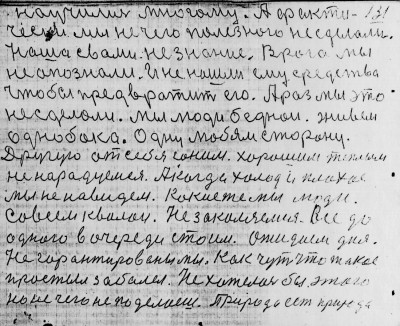 научилих многому. А факти- 131
чески мы не чего полезного не сделали.
Наша свами. не знание. Врага мы
не опознали. И не нашли ему средства
чтобы предвратит его. А раз мы это
не сделали. мы люди бедной. живем
однобока. Одну любям сторону.
Другую от себя гоним. хорошим теплым
не нарадуемся. А когда холод и плохое
мы не навидем. Какие же мы люди.
Совсем кволаи. Не закаляемся. Все до
одного в очереди стоим. Ожидаем дня.
Не гарантированы мы. Как чут что такое
простыл заболел. Не хотелох бы. этого
но не чего не поделаеш. Природа ест природа